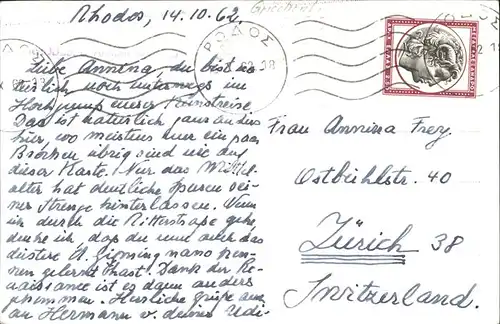 Rhodos, 14.10.62
Griechenl.
ΡΟΔΟΣ
Liebe Annina, du bist na-
türlich noch unterwegs im
Hochjump eurer Kunstreise
Das ist natürlich ganz anders
hier, wo meistens nur ein paar
Bröcken übrig sind wie auf
dieser Karte. Nur das Mittel-
alter hat deutliche Spuren sei-
ner Strenge hinterlassen. Wenn
ich durch die Ritterstrasse gehe,
denke ich, dass du nun auch das
düstere S. Gimignano ken-
nen gelernt hast. Dank der Re-
naissance ist es dann anders
gekommen. Herzliche Grüsse auch
an Hermann v. deiner
Frau Annina Frey
Ostbühlstr. 40
Zürich 38
Switzerland.